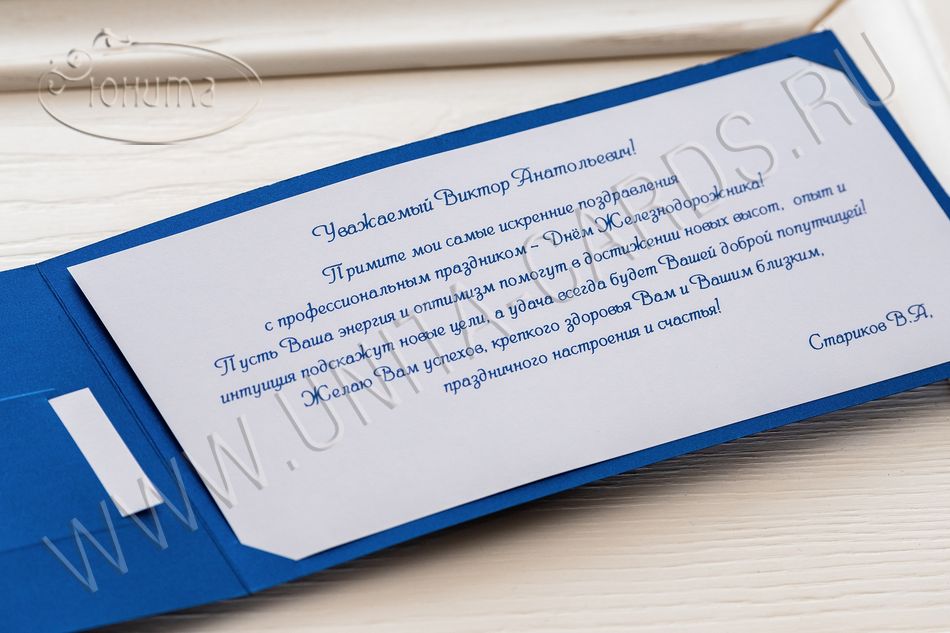 Юнита
Уважаемый Виктор Анатольевич!
Примите мои самые искренние поздравления
с профессиональным праздником – Днём Железнодорожника!
Пусть Ваша энергия и оптимизм помогут в достижении новых высот, опыт и
интуиция подскажут новые цели, а удача всегда будет Вашей доброй попутчицей!
Желаю Вам успехов, крепкого здоровья Вам и Вашим близким,
праздничного настроения и счастья!
Стариков В.А.
WWW.UNITA-CARDS.RU